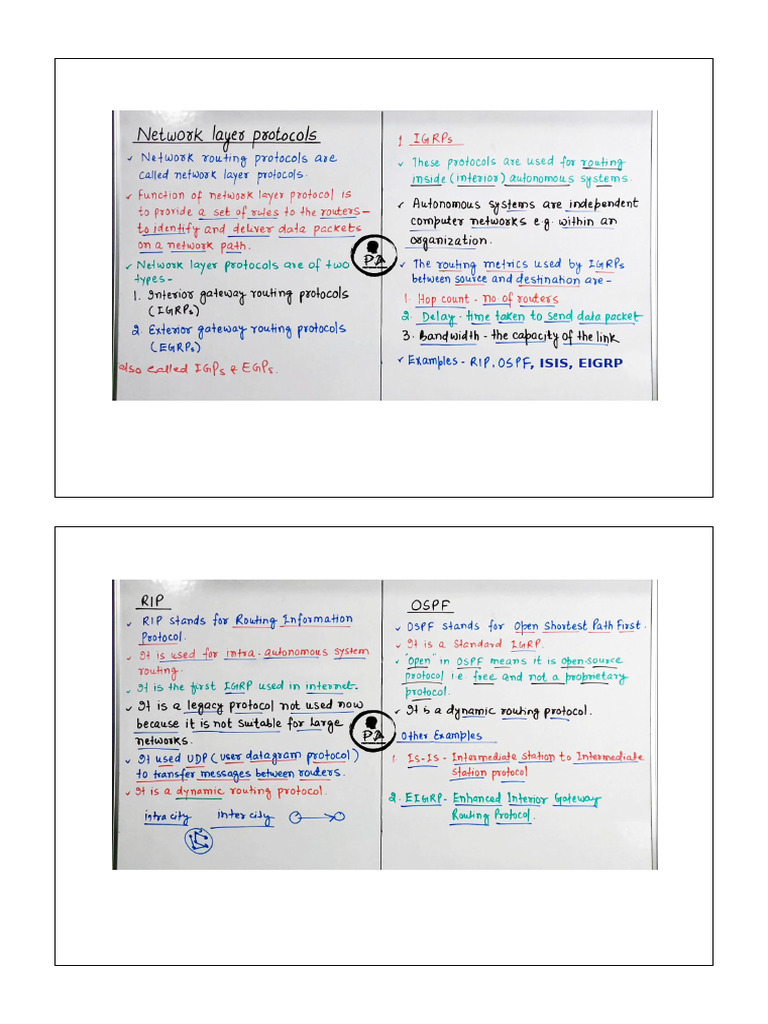 Network layer protocols
✓ Network routing protocols are
called network layer protocols.
✓ Function of network layer protocol is
to provide a set of rules to the routers-
to identify and deliver data packets
on a network path.
✓ Network layer protocols are of two
types-
1. Interior gateway routing protocols
(IGRPs)
2. Exterior gateway routing protocols
(EGRPs)
also called IGPs & EGPs.
PA
1. IGRPs
✓ These protocols are used for routing
inside (interior) autonomous systems.
✓ Autonomous systems are independent
computer networks e.g. within an
organization.
✓ The routing metrics used by IGRPs
between source and destination are-
1. Hop count - no. of routers
2. Delay - time taken to send data packet
3. Bandwidth - the capacity of the link
✓ Examples - RIP, OSPF, ISIS, EIGRP
RIP
✓ RIP stands for Routing Information
Protocol.
✓ It is used for intra-autonomous system
routing.
✓ It is the first IGRP used in internet.
✓ It is a legacy protocol not used now
because it is not suitable for large
networks.
✓ It used UDP (user datagram protocol)
to transfer messages between routers.
✓ It is a dynamic routing protocol.
intra city inter city
PA
OSPF
✓ OSPF stands for Open Shortest Path First.
✓ It is a Standard IGRP.
✓ "Open" in OSPF means it is open-source
protocol i.e. free and not a proprietary
protocol.
✓ It is a dynamic routing protocol.
Other Examples
1. Is-Is - Intermediate Station to Intermediate
Station protocol
2. EIGRP - Enhanced Interior Gateway
Routing Protocol.